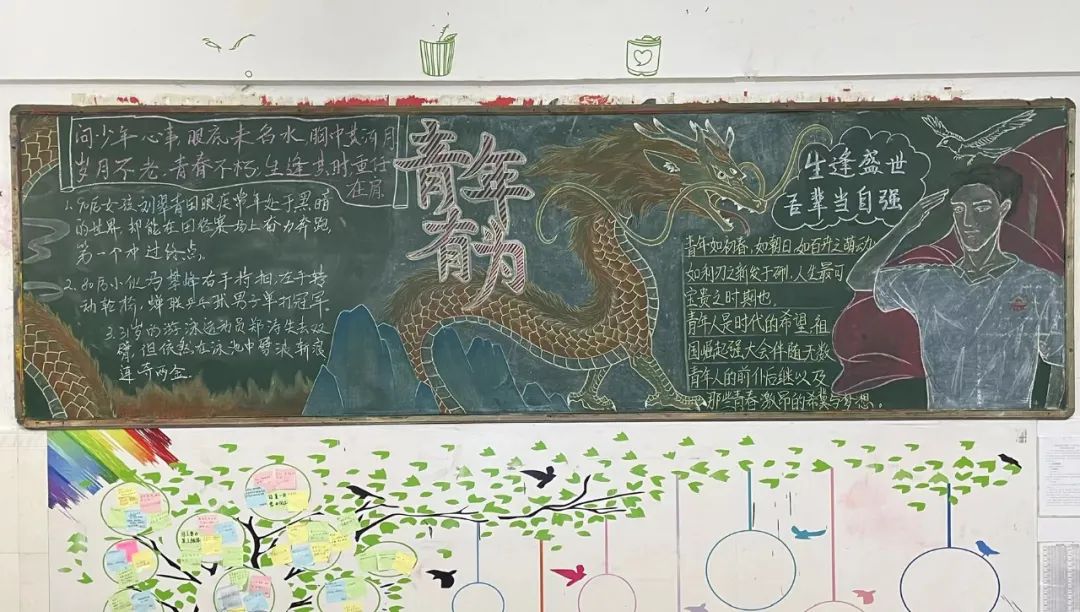 问少年心事 眼底未名水 胸中黄河月
岁月不老,青春不朽,生逢其时,重任
在肩
1.90后女孩刘翠青因眼疾常年处于黑暗
的世界,却能在田径赛场上奋力奔跑,
第一个冲过终点。
2.80后小伙马攀峰右手持拍,左手转
动轮椅,蝉联乒乓球男子单打冠军。
3.31岁的游泳运动员郑涛失去双
臂,但依然在泳池中劈波斩浪
连夺两金。
青年
有为
生逢盛世
吾辈当自强
青年如初春,如朝日,如百卉之萌动
如利刃之新发于硎,人生最可
宝贵之时期也。
青年人是时代的希望,祖
国崛起强大会伴随无数
青年人的前仆后继以及
那些青春激昂的希冀与梦想。